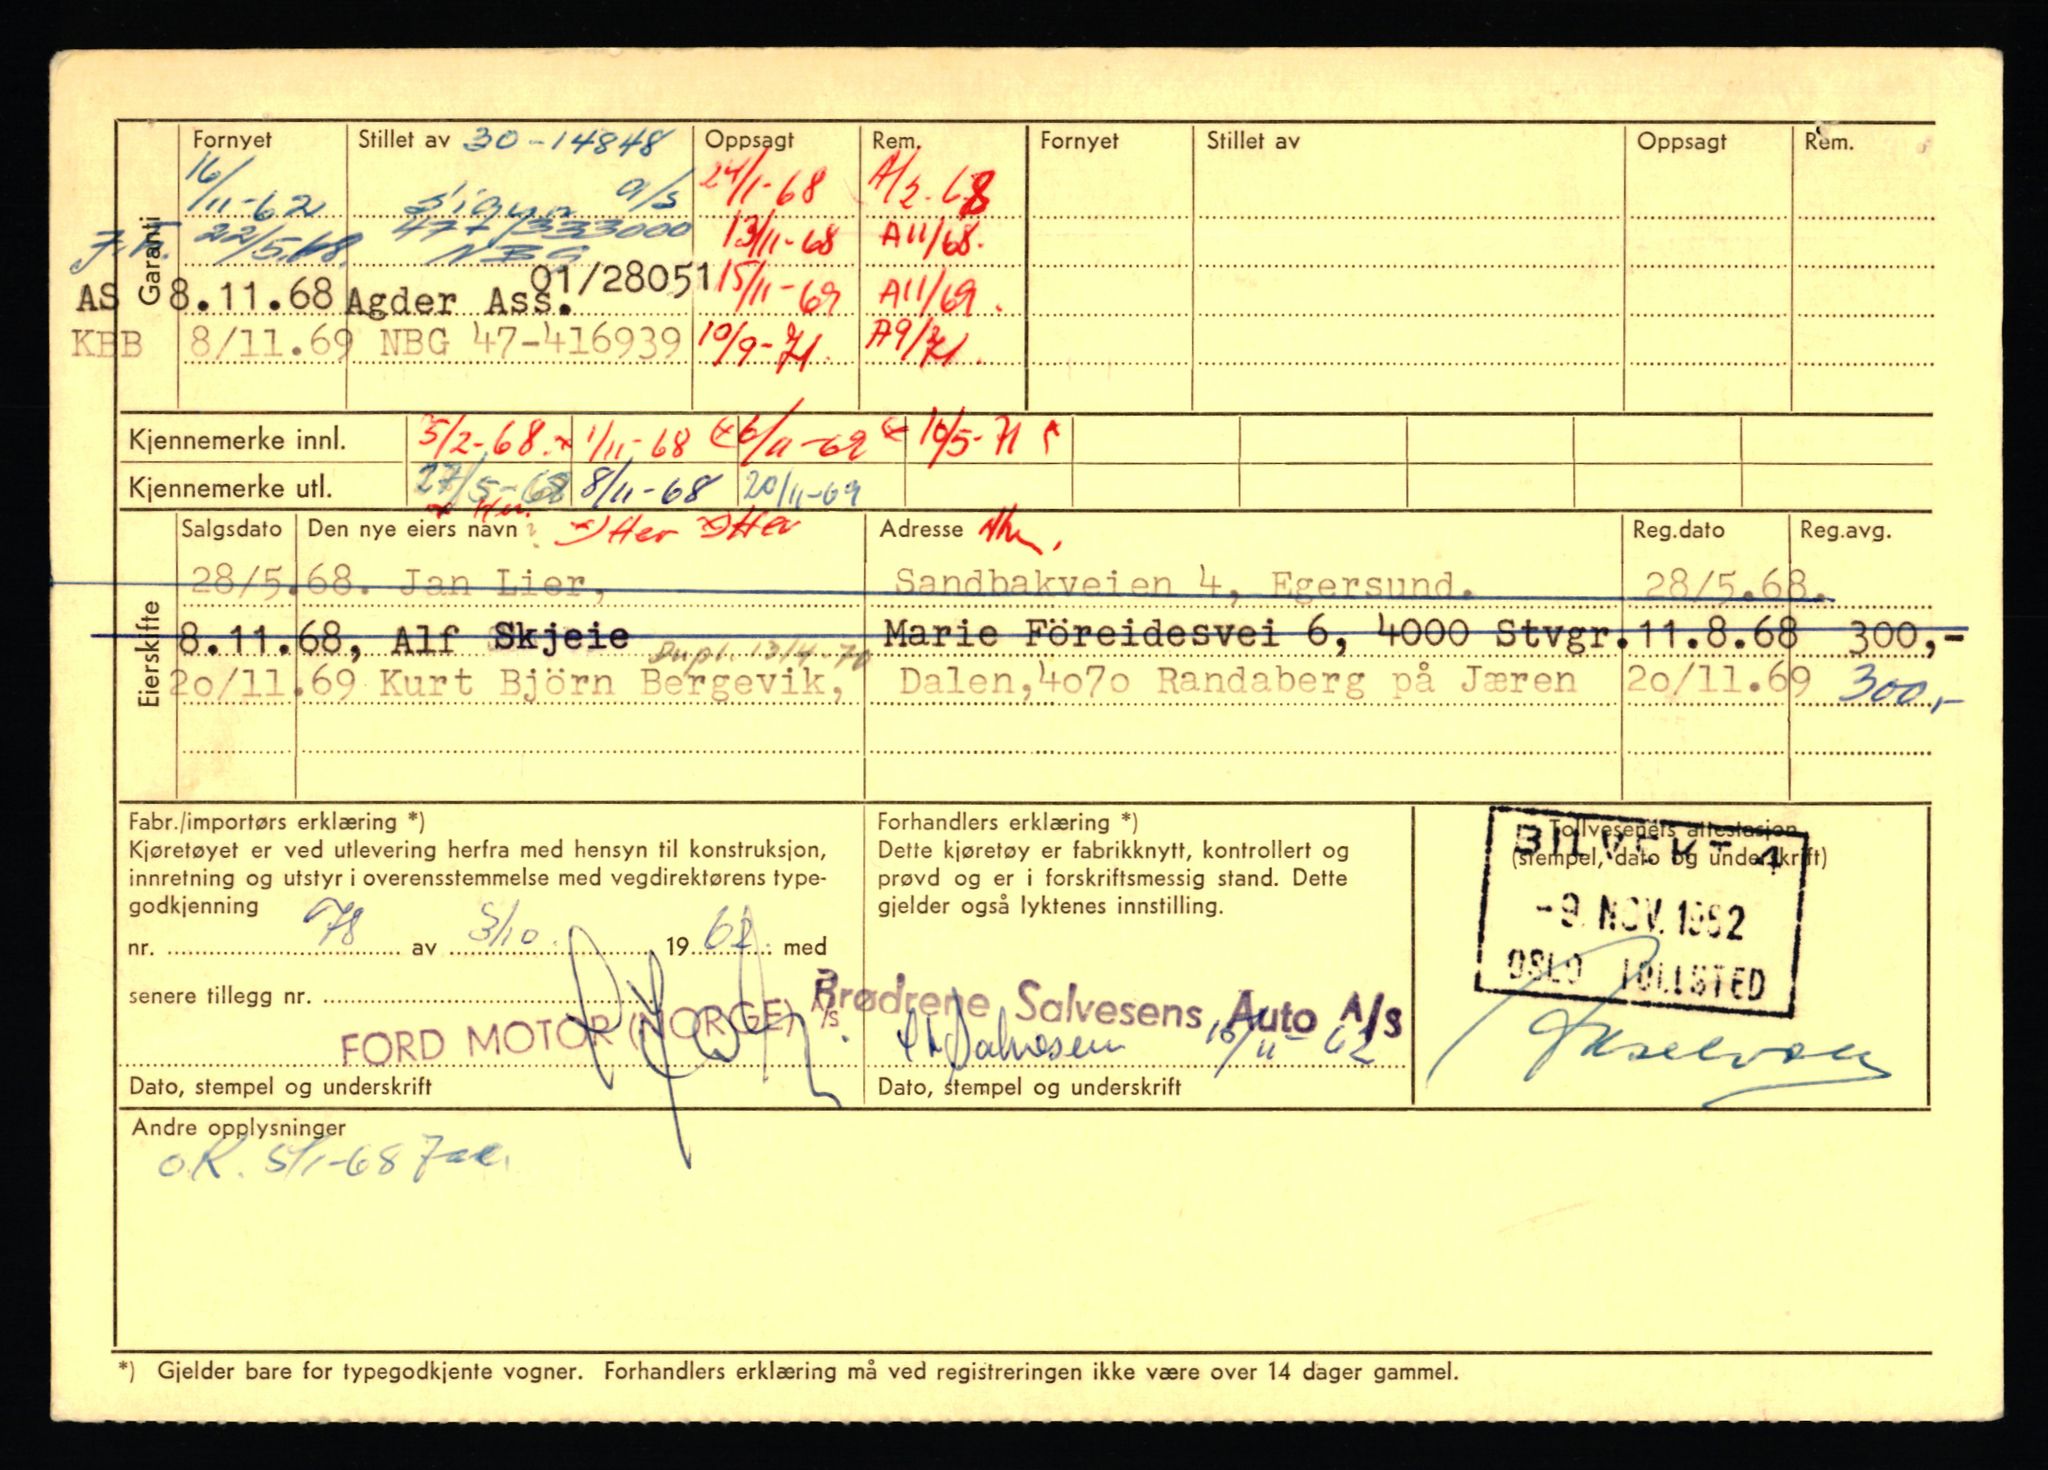 Fornyet Stillet av 30-14848 Oppsagt Rem. Fornyet Stillet av Oppsagt Rem.
Garanti
16/11-62 Sigyn a/s 24/1-68 A/2-68
22/5.68. 477/333000 NBG 13/11-68 A11/68.
AS 8.11.68 Agder Ass. 01/28051 15/11-69 A11/69.
KBB 8/11.69 NBG 47-416939 10/9-71. A9/71.
Kjennemerke innl. 5/2-68. 1/11-68 6/11-69 10/5-71
Kjennemerke utl. 27/5-68 8/11-68 20/11-69
Eierskifte
Salgsdato Den nye eiers navn Adresse Reg.dato Reg.avg.
28/5.68. Jan Lier, Sandbakveien 4, Egersund. 28/5.68.
8.11.68, Alf Skjeie Marie Föreidesvei 6, 4000 Stvgr. 11.8.68 300,-
Dupl. 13/4-70
20/11.69 Kurt Björn Bergevik, Dalen, 4070 Randaberg på Jæren 20/11.69 300,-
Fabr./importørs erklæring *)
Kjøretøyet er ved utlevering herfra med hensyn til konstruksjon,
innretning og utstyr i overensstemmelse med vegdirektørens type-
godkjenning
nr. 78 av 3/10. 1962. med
senere tillegg nr.
FORD MOTOR (NORGE) A/S
Dato, stempel og underskrift
Forhandlers erklæring *)
Dette kjøretøy er fabrikknytt, kontrollert og
prøvd og er i forskriftsmessig stand. Dette
gjelder også lyktenes innstilling.
Brødrene Salvesens Auto A/S
Salvesen 15/11-62
Dato, stempel og underskrift
Tollvesenets attestasjon
(stempel, dato og underskrift)
-9. NOV. 1962
OSLO TOLLSTED
Andre opplysninger
O.K. 5/1-68
*) Gjelder bare for typegodkjente vogner. Forhandlers erklæring må ved registreringen ikke være over 14 dager gammel.